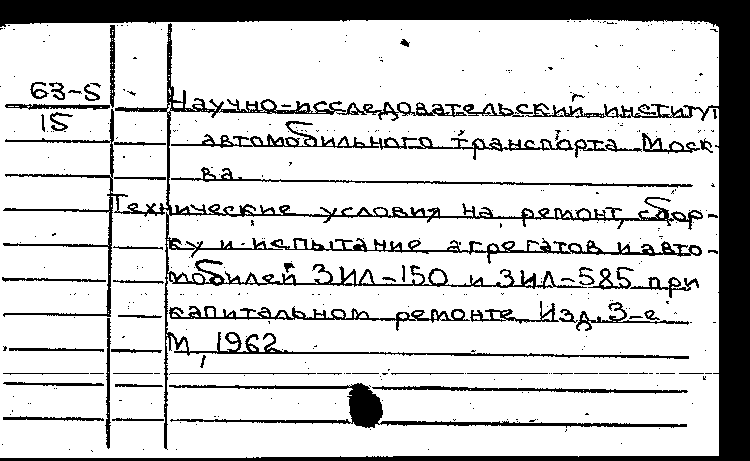 63-5
15
Научно-исследовательский институт
автомобильного транспорта Моск-
ва.
Технические условия на ремонт, сбор-
ку и испытание агрегатов и авто-
мобилей ЗИЛ-150 и ЗИЛ-585 при
капитальном ремонте. Изд. 3-е
М, 1962.